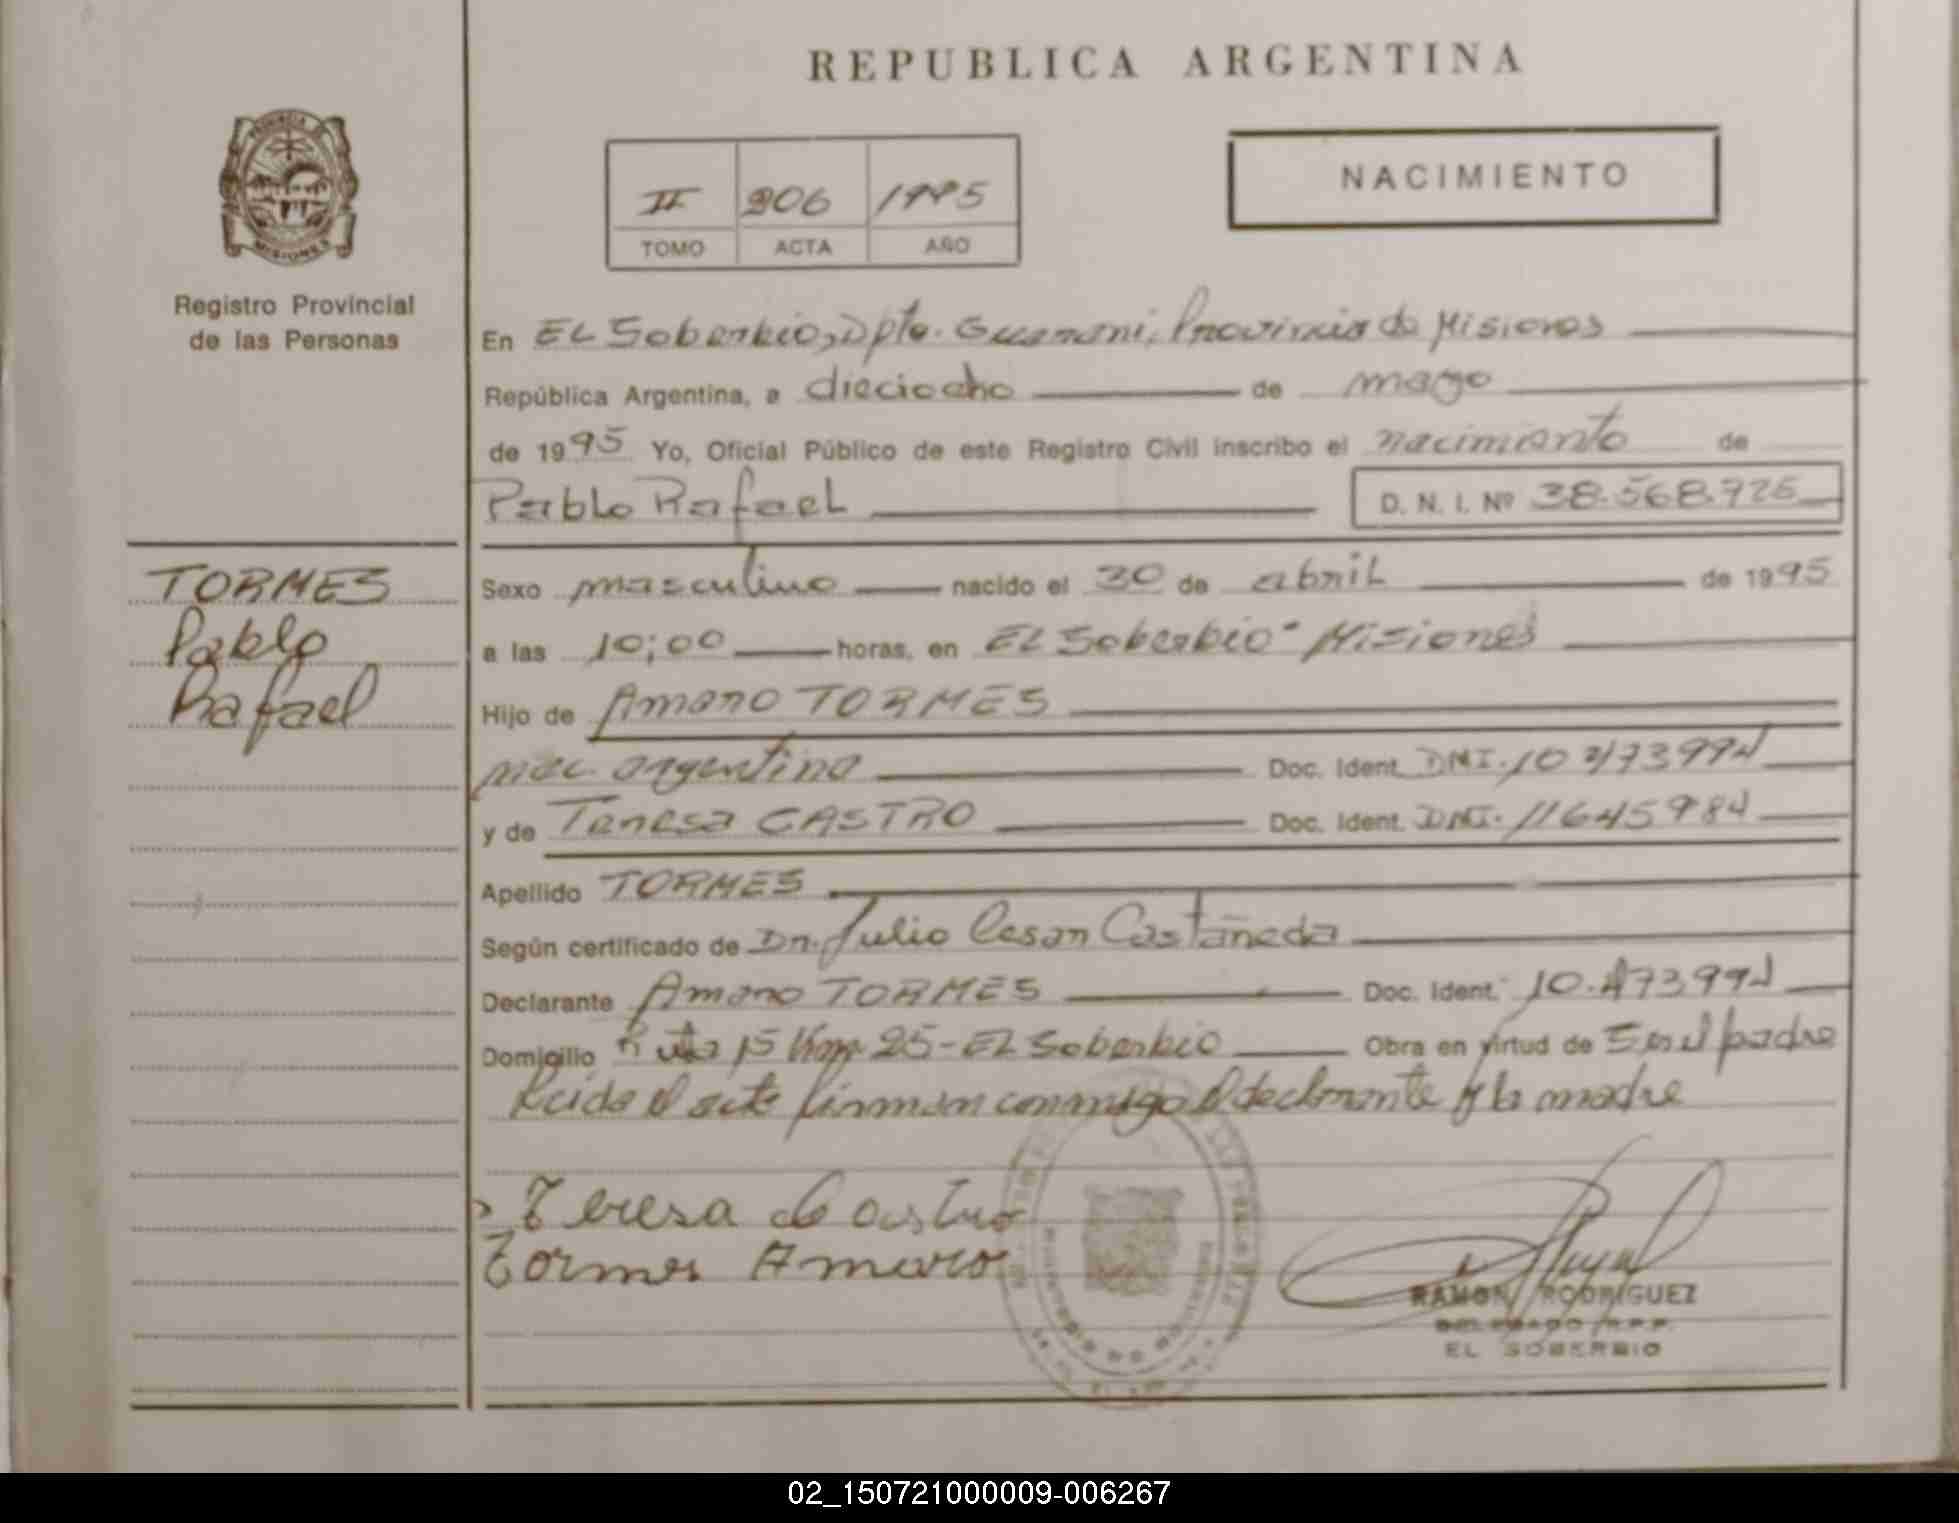 REPUBLICA ARGENTINA
PROVINCIA DE
MISIONES
Registro Provincial
de las Personas
II 206 1995
TOMO ACTA AÑO
NACIMIENTO
En EL Soberbio, Dpto. Guarani, Provincia de Misiones
República Argentina, a dieciocho de mayo
de 1995 Yo, Oficial Público de este Registro Civil inscribo el nacimiento de
Pablo Rafael D. N. I. Nº 38.568.726
TORMES
Pablo
Rafael
Sexo masculino nacido el 30 de abril de 1995
a las 10;00 horas, en EL Soberbio - Misiones
Hijo de Amaro TORMES
nac. argentina Doc. Ident. DNI.
y de Teresa CASTRO Doc. Ident. DNI. 11645984
Apellido TORMES
Según certificado de Dr. Julio Cesar Castañeda
Declarante Amaro TORMES Doc. Ident.
Domicilio Ruta 15 Km 25 - EL Soberbio Obra en virtud de Ser el padre
Leida el acta firman conmigo el declarante y la madre
Teresa de Castro
Tormes Amaro
RAMON RODRIGUEZ
DELEGADO R.P.P.
EL SOBERBIO
02_150721000009-006267